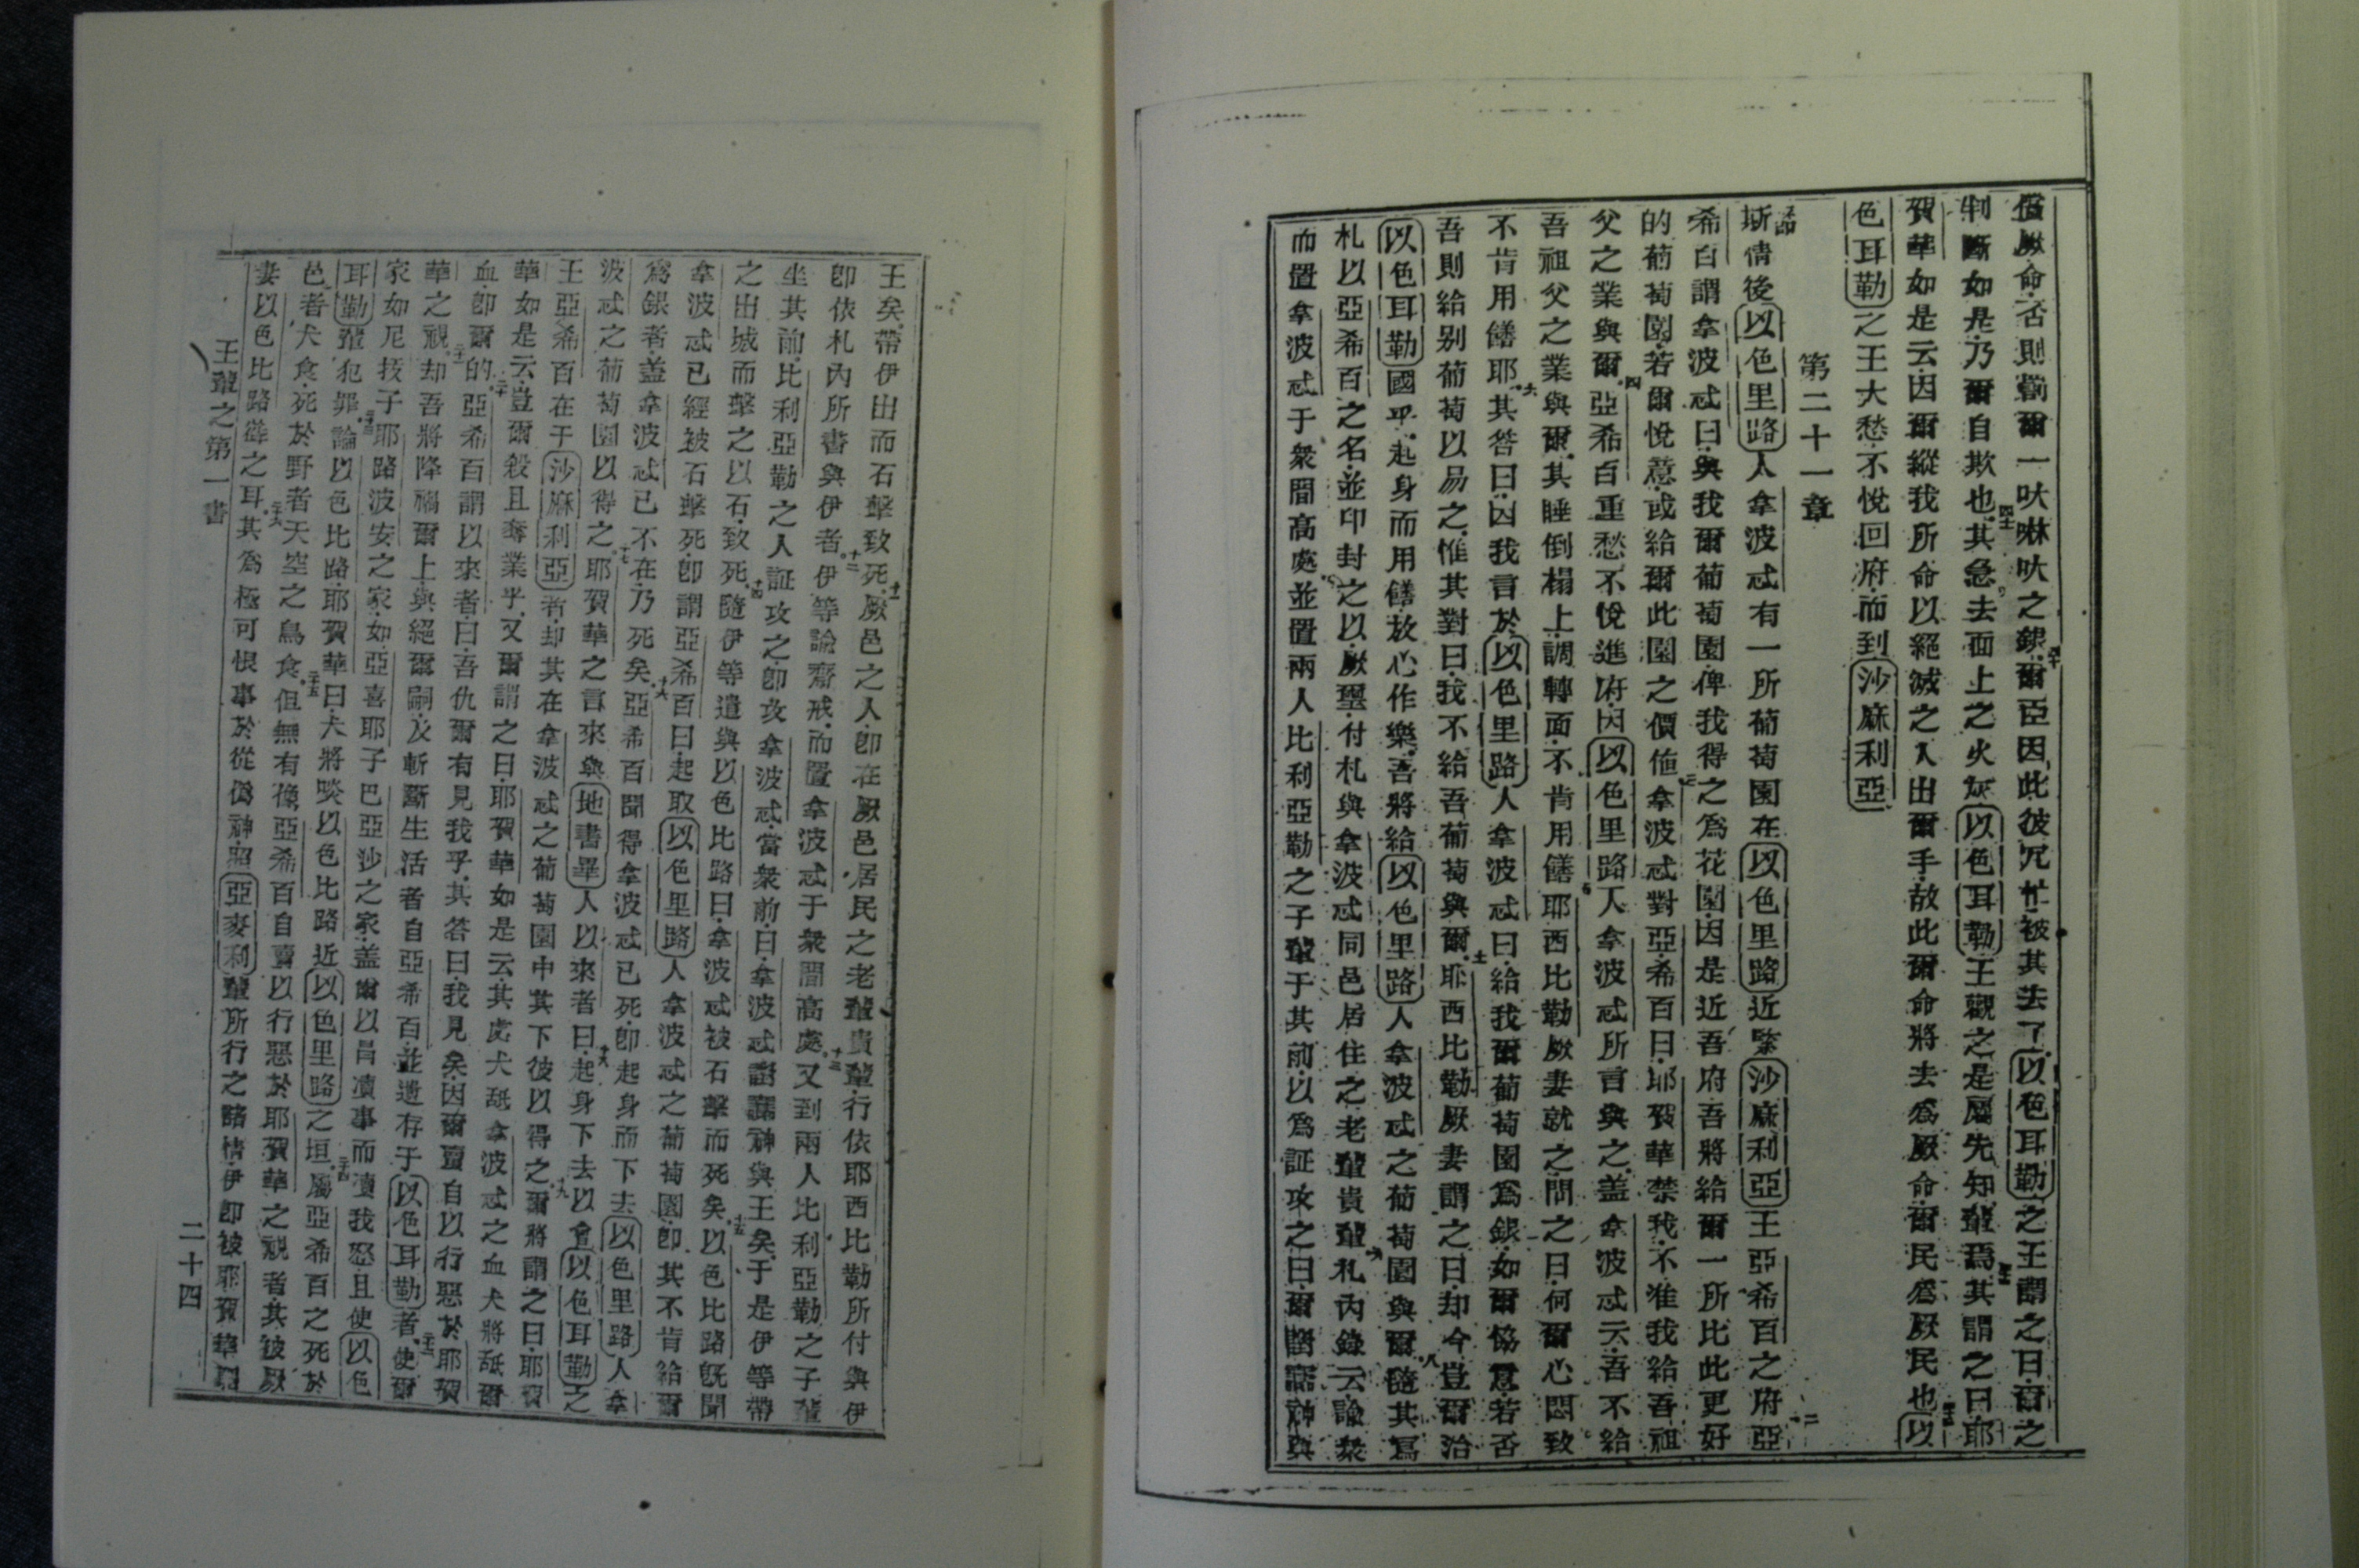 償厥命否則罰爾一吠啉吠之銀爾臣因此彼冗忙被其去了以色耳勒之王謂之曰爾之
判斷如是乃爾自欺也其急去面上之火灰以色耳勒王觀之是屬先知輩焉其謂之曰耶
賀華如是云因爾縱我所命以絕滅之人出爾手故此爾命將去為厥命爾民為厥民也以
色耳勒之王大愁不悅回府而到沙麻利亞
第二十一章
斯情後以色里路人拿波忒有一所葡萄園在以色里路近緊沙麻利亞王亞希百之府亞
希百謂拿波忒曰與我爾葡萄園俾我得之為花園因是近吾府吾將給爾一所比此更好
的葡萄園若爾悅意或給爾此園之價值拿波忒對亞希百曰耶賀華禁我不准我給吾祖
父之業與爾亞希百重愁不悅進府因以色里路人拿波忒所言與之蓋拿波忒云吾不給
吾祖父之業與爾其睡倒榻上調轉面不肯用饍耶西比勒厥妻就之問之曰何爾心悶致
不肯用饍耶其答曰因我言於以色里路人拿波忒曰給我爾葡萄園為銀如爾協意若否
吾則給別葡萄以易之惟其對曰我不給吾葡萄與爾耶西比勒厥妻謂之曰却今豈爾治
以色耳勒國乎起身而用饍放心作樂吾將給以色里路人拿波忒之葡萄園與爾隨其寫
札以亞希百之名並印封之以厥璽付札與拿波忒同邑居住之老輩貴輩札內錄云論衆
而置拿波忒于衆間高處並置兩人比利亞勒之子輩于其前以為証攻之曰爾謗讟神與
王矣帶伊出而石擊致死厥邑之人即在厥邑居民之老輩貴輩行依耶西比勒所付與伊
即依札內所書與伊者伊等論齋戒而置拿波忒于衆間高處又到兩人比利亞勒之子輩
坐其前比利亞勒之人証攻之即攻拿波忒當衆前曰拿波忒謗讟神與王矣于是伊等帶
之出城而擊之以石致死隨伊等遣與以色比路曰拿波忒被石擊而死矣以色比路既聞
拿波忒已經被石擊死即謂亞希百曰起取以色里路人拿波忒之葡萄園即其不肯給爾
為銀者蓋拿波忒已不在乃死矣亞希百聞得拿波忒已死即起身而下去以色里路人拿
波忒之葡萄園以得之耶賀華之言來與地書畢人以來者曰起身下去以會以色耳勒之
王亞希百在于沙麻利亞者却其在拿波忒之葡萄園中其下彼以得之爾將謂之曰耶賀
華如是云豈爾殺且奪業乎又爾謂之曰耶賀華如是云其處犬舐拿波忒之血犬將舐爾
血即爾的亞希百謂以來者曰吾仇爾有見我乎其答曰我見矣因爾賣自以行惡於耶賀
華之視却吾將降禍爾上與絕爾嗣及斬斷生活者自亞希百並遺存于以色耳勒者使爾
家如尼抜子耶路波安之家如亞喜耶子巴亞沙之家蓋爾以昌凟事而凟我怒且使以色
耳勒輩犯罪論以色比路耶賀華曰犬將啖以色比路近以色里路之垣屬亞希百之死於
邑者犬食死於野者天空之鳥食但無有像亞希百自賣以行惡於耶賀華之視者其被厥
妻以色比路聳之耳其為極可恨事於從偽神照亞麥利輩所行之諸情伊即被耶賀華
王輩之第一書
二十四